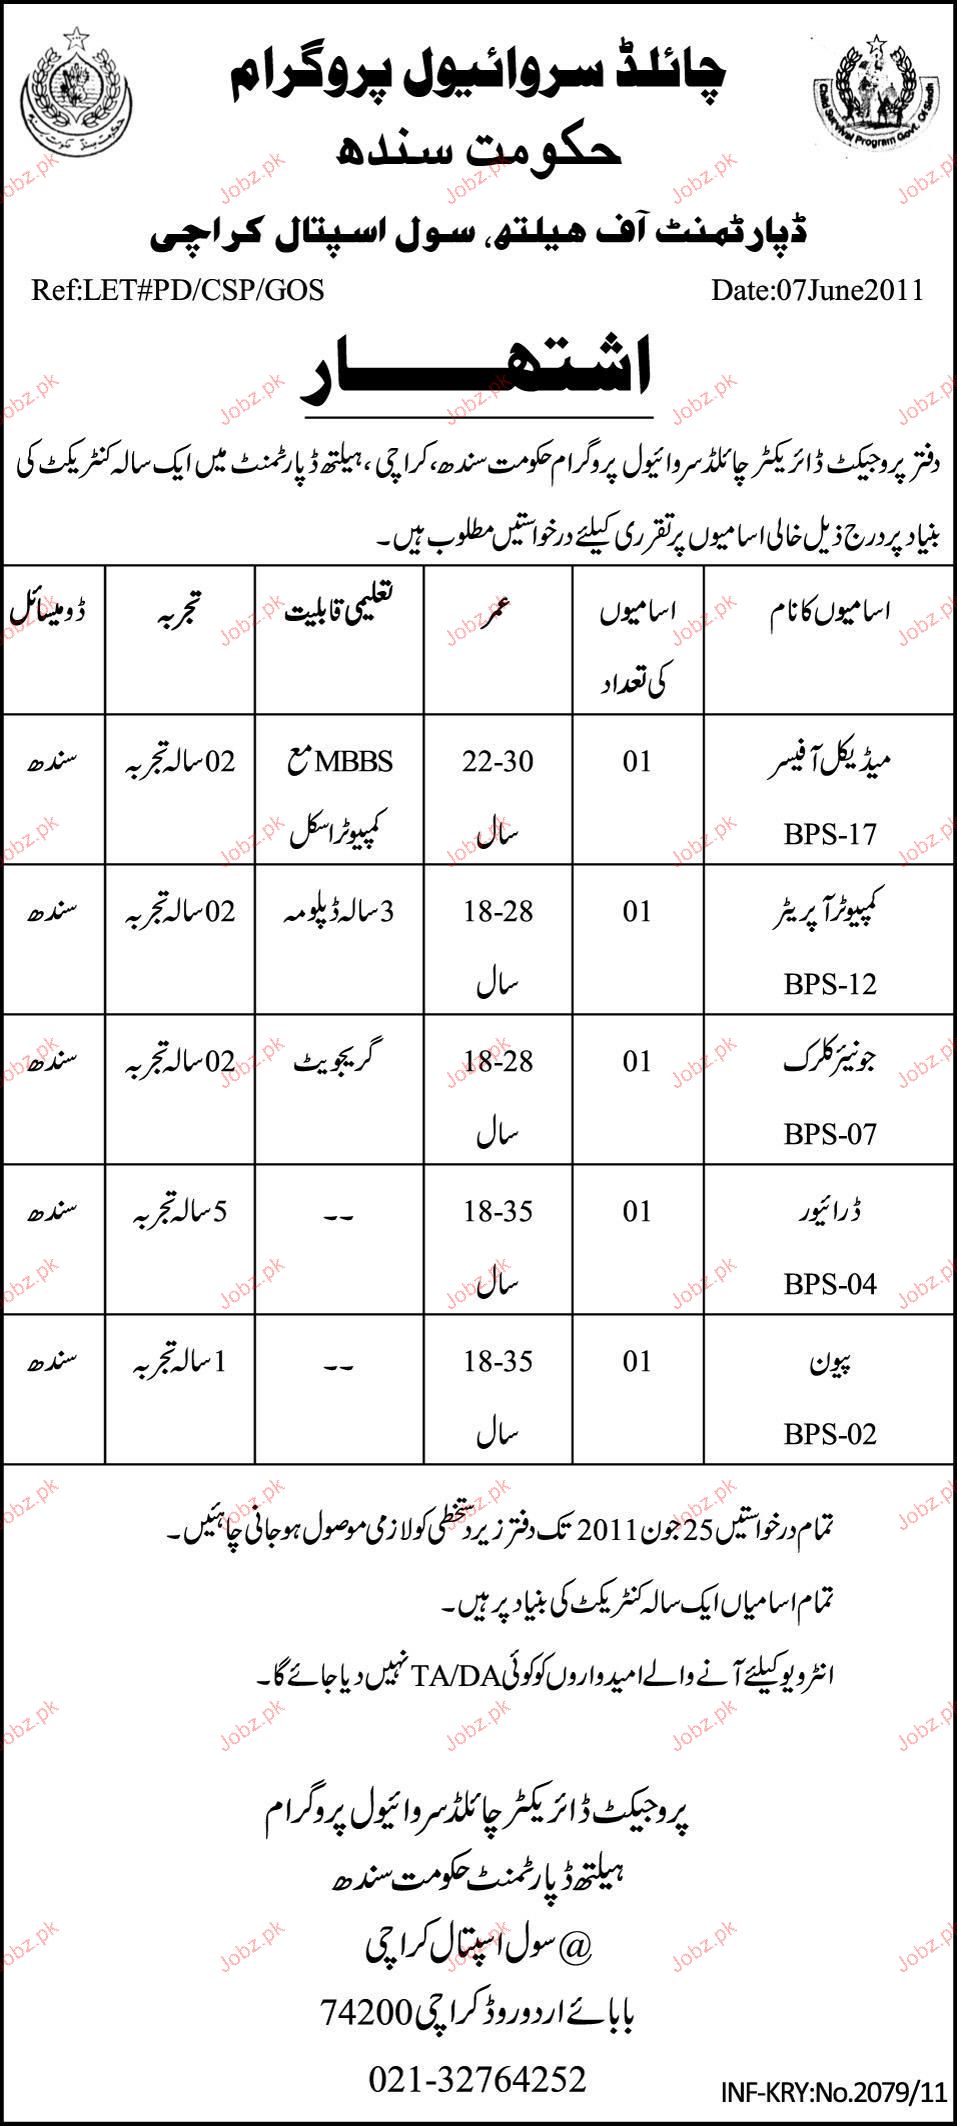 چائلڈ سروائیول پروگرام
حکومت سندھ
Child Survival Program Govt. Of Sindh
ڈپارٹمنٹ آف ھیلتھ، سول اسپتال کراچی
Ref:LET#PD/CSP/GOS Date:07June2011
اشتھار
دفتر پروجیکٹ ڈائریکٹر چائلڈ سروائیول پروگرام حکومت سندھ، کراچی، ہیلتھ ڈپارٹمنٹ میں ایک سالہ کنٹریکٹ کی
بنیاد پر درج ذیل خالی اسامیوں پر تقرری کیلئے درخواستیں مطلوب ہیں۔
اسامیوں کا نام اسامیوں کی تعداد عمر تعلیمی قابلیت تجربہ ڈومیسائل
میڈیکل آفیسر 01 22-30 MBBS مع 02 سالہ تجربہ سندھ
BPS-17 سال کمپیوٹر اسکل
کمپیوٹر آپریٹر 01 18-28 3 سالہ ڈپلومہ 02 سالہ تجربہ سندھ
BPS-12 سال
جونیئر کلرک 01 18-28 گریجویٹ 02 سالہ تجربہ سندھ
BPS-07 سال
ڈرائیور 01 18-35 -- 5 سالہ تجربہ سندھ
BPS-04 سال
پیون 01 18-35 -- 1 سالہ تجربہ سندھ
BPS-02 سال
تمام درخواستیں 25 جون 2011 تک دفتر زیر دستخطی کو لازمی موصول ہو جانی چاہئیں۔
تمام اسامیاں ایک سالہ کنٹریکٹ کی بنیاد پر ہیں۔
انٹرویو کیلئے آنے والے امیدواروں کو کوئی TA/DA نہیں دیا جائے گا۔
پروجیکٹ ڈائریکٹر چائلڈ سروائیول پروگرام
ہیلتھ ڈپارٹمنٹ حکومت سندھ
@ سول اسپتال کراچی
بابائے اردو روڈ کراچی 74200
021-32764252
INF-KRY:No.2079/11
Jobz.pk